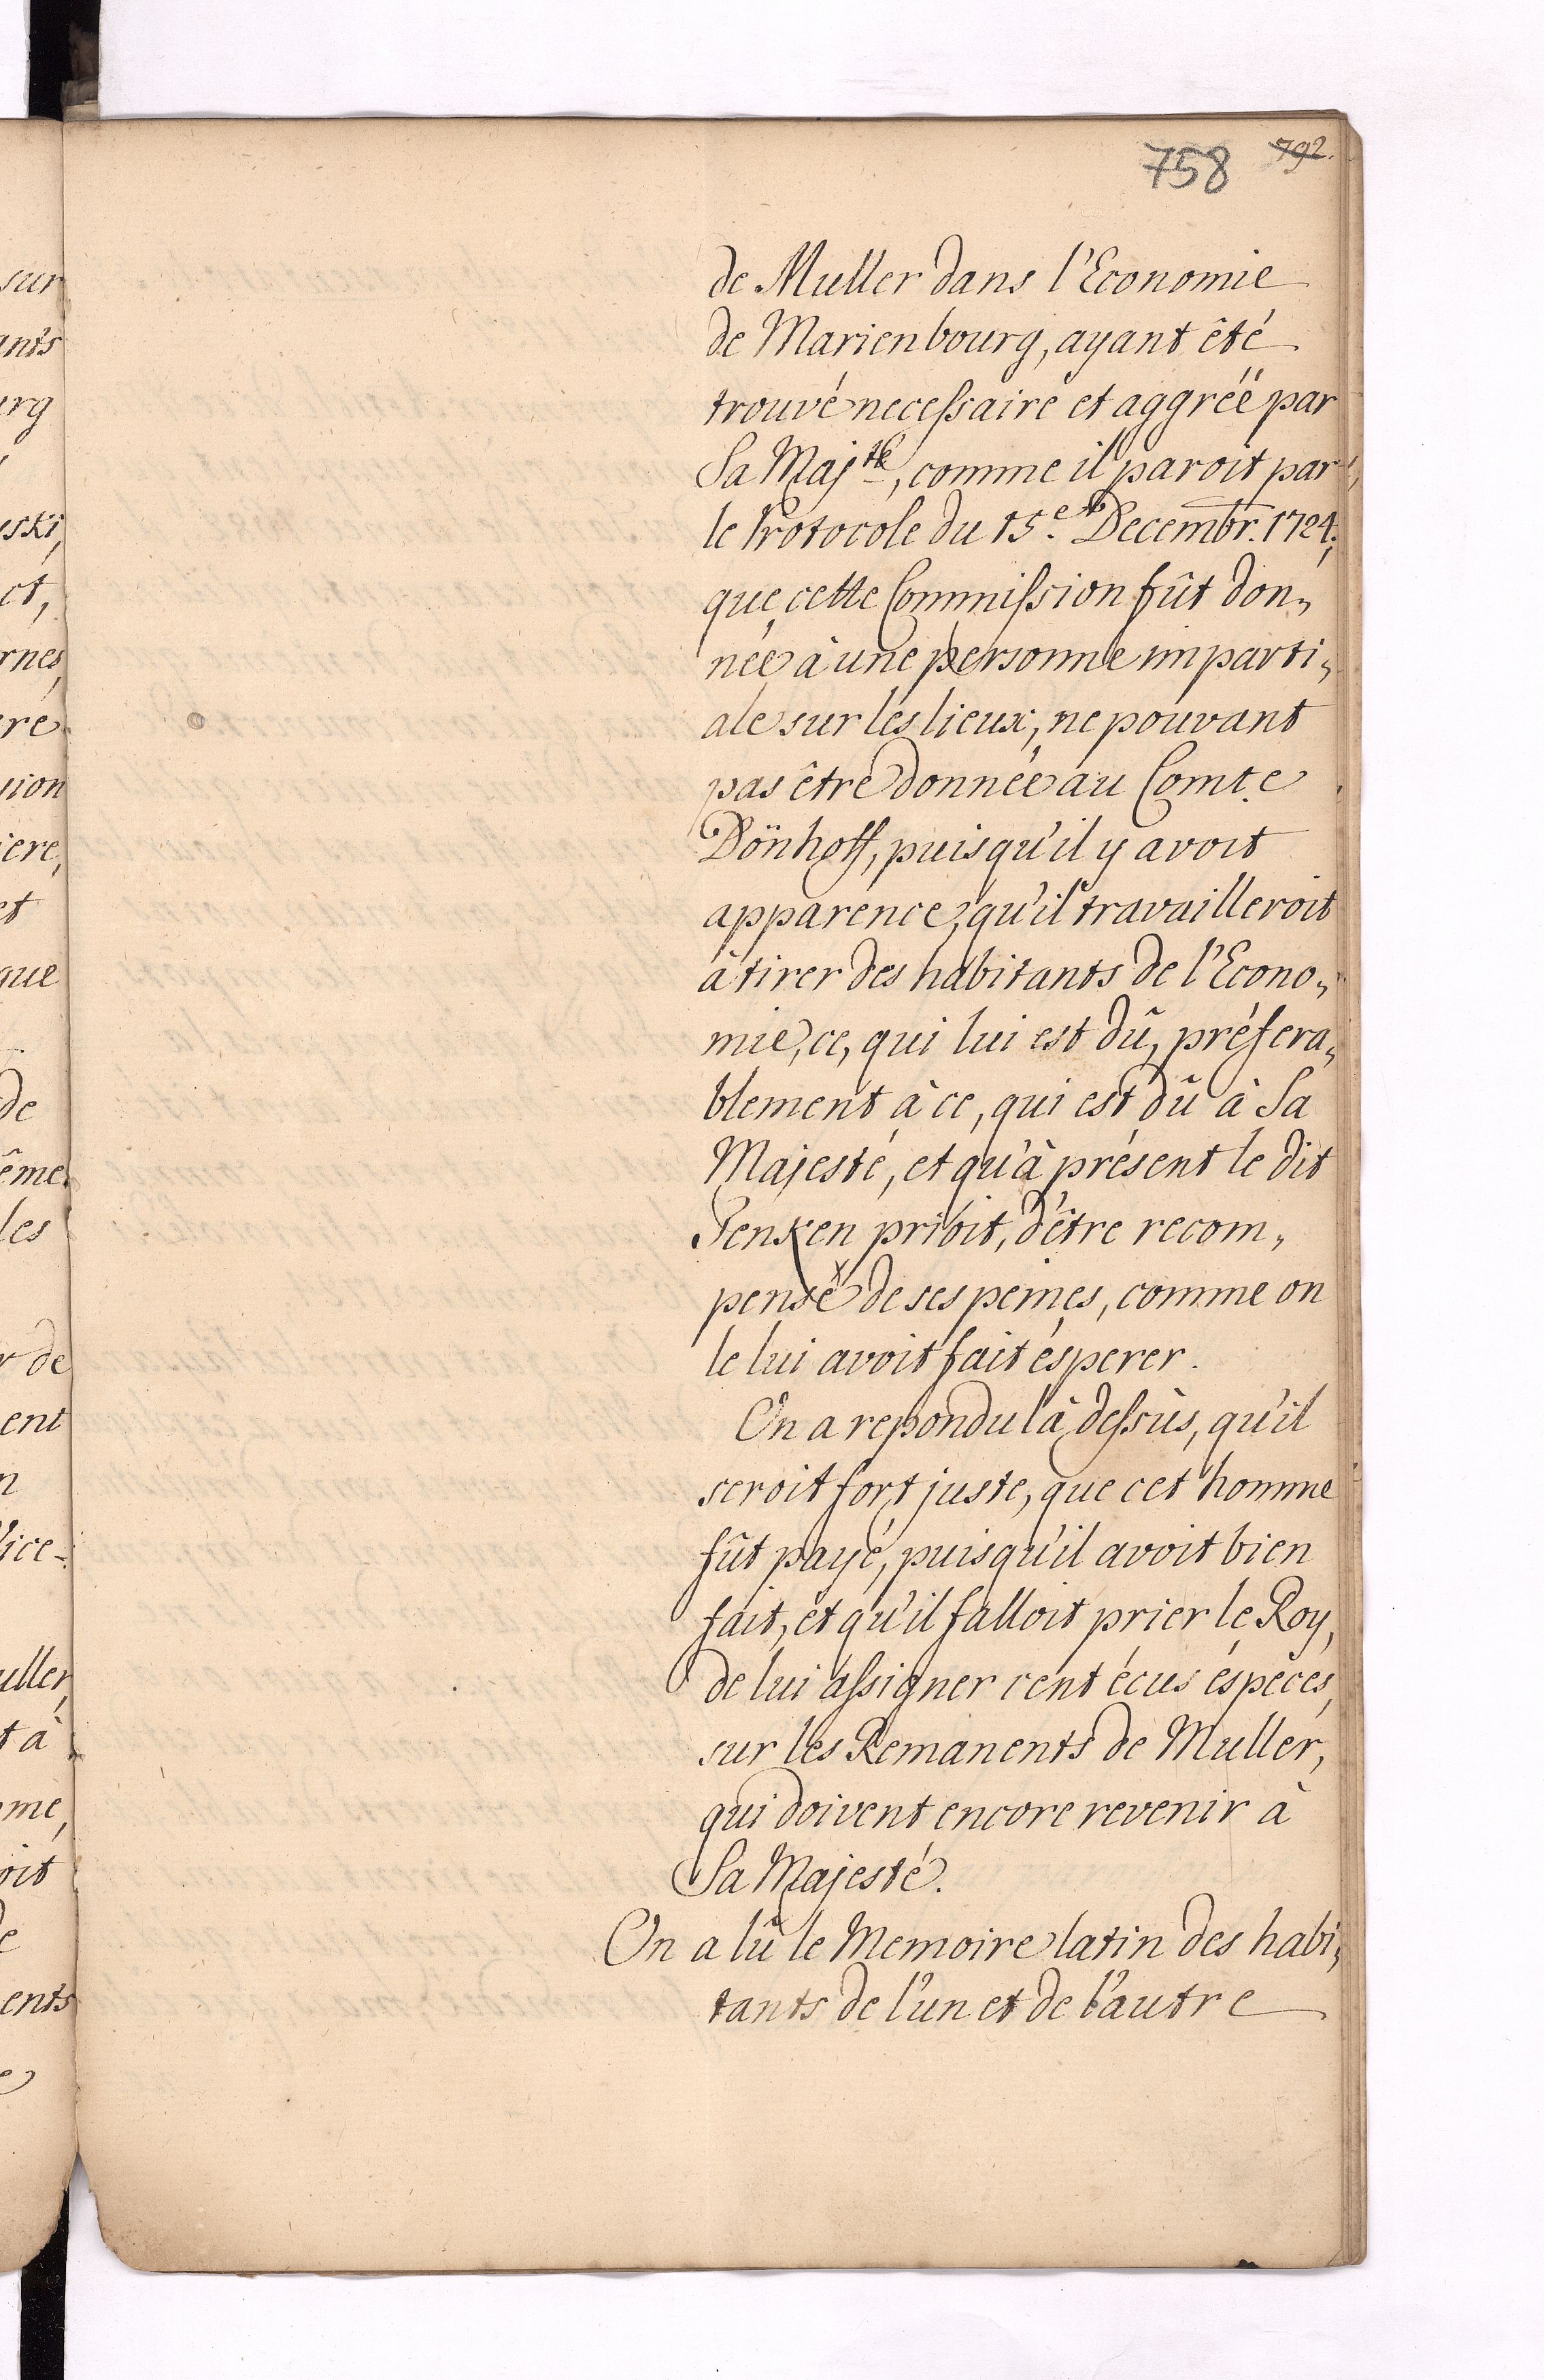 758 792.
de Muller dans l'Economie
de Marienbourg, ayant êté
trouvé necessaire et aggréë par
Sa Maj.té, comme il paroit par
le Protocole du 15.e Decembr. 1724.,
que cette Commission fût don„
née à une personne imparti„
ale sur les lieux, ne pouvant
pas être donnée au Comte
Dönhoff, puisqu'il y avoit
apparence, qu'il travailleroit
à tirer des habitants de l'Econo„
mie, ce, qui lui est dû, préfera„
blement à ce, qui est dû à Sa
Majesté, et qu'à présent le dit
Jenken prioit, d'être recom„
pensé de ses peines, comme on
le lui avoit fait ésperer.
On a repondu là dessus, qu'il
seroit fort juste, que cet homme
fût payé, puisqu'il avoit bien
fait, et qu'il falloit prier le Roy,
de lui assigner cent écus éspeces,
sur les Remanents de Muller,
qui doivent encore revenir à
Sa Majesté.
On a lû le Memoire latin des habi„
tants de l'un et de l'autre